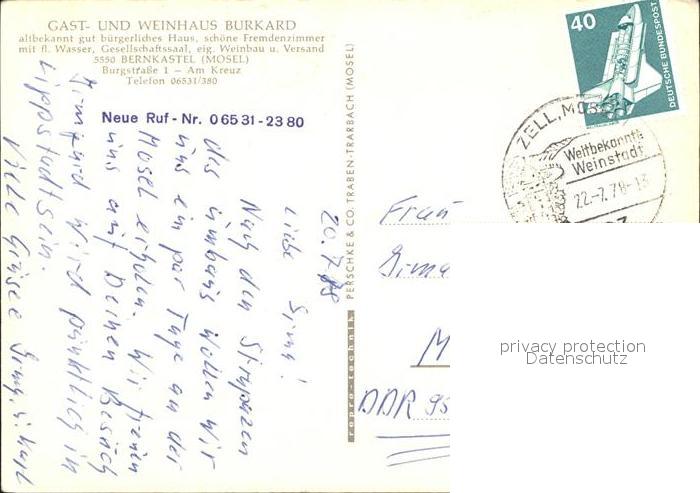 GAST- UND WEINHAUS BURKARD
altbekannt gut bürgerliches Haus, schöne Fremdenzimmer
mit fl. Wasser, Gesellschaftssaal, eig. Weinbau u. Versand
5550 BERNKASTEL (MOSEL)
Burgstraße 1 – Am Kreuz
Telefon 06531/380
Neue Ruf - Nr. 0 65 31 - 23 80
20.7.78
Liebe Irma!
Nach den Strapazen
des Umbaus wollen wir
uns ein par Tage an der
Mosel erholen. Wir freuen
uns auf Deinen Besuch
Irmgard wird pünktlich in
Lippstadt sein.
Viele Grüsse Irmg. u. Karl
repro-technik PERSCHKE & CO. TRABEN-TRARBACH (MOSEL)
40
DEUTSCHE BUNDESPOST
ZELL, MOSEL
Weltbekannte
Weinstadt
22.-7.78-13
Frau
Irma
M
DDR 95
privacy protection
Datenschutz